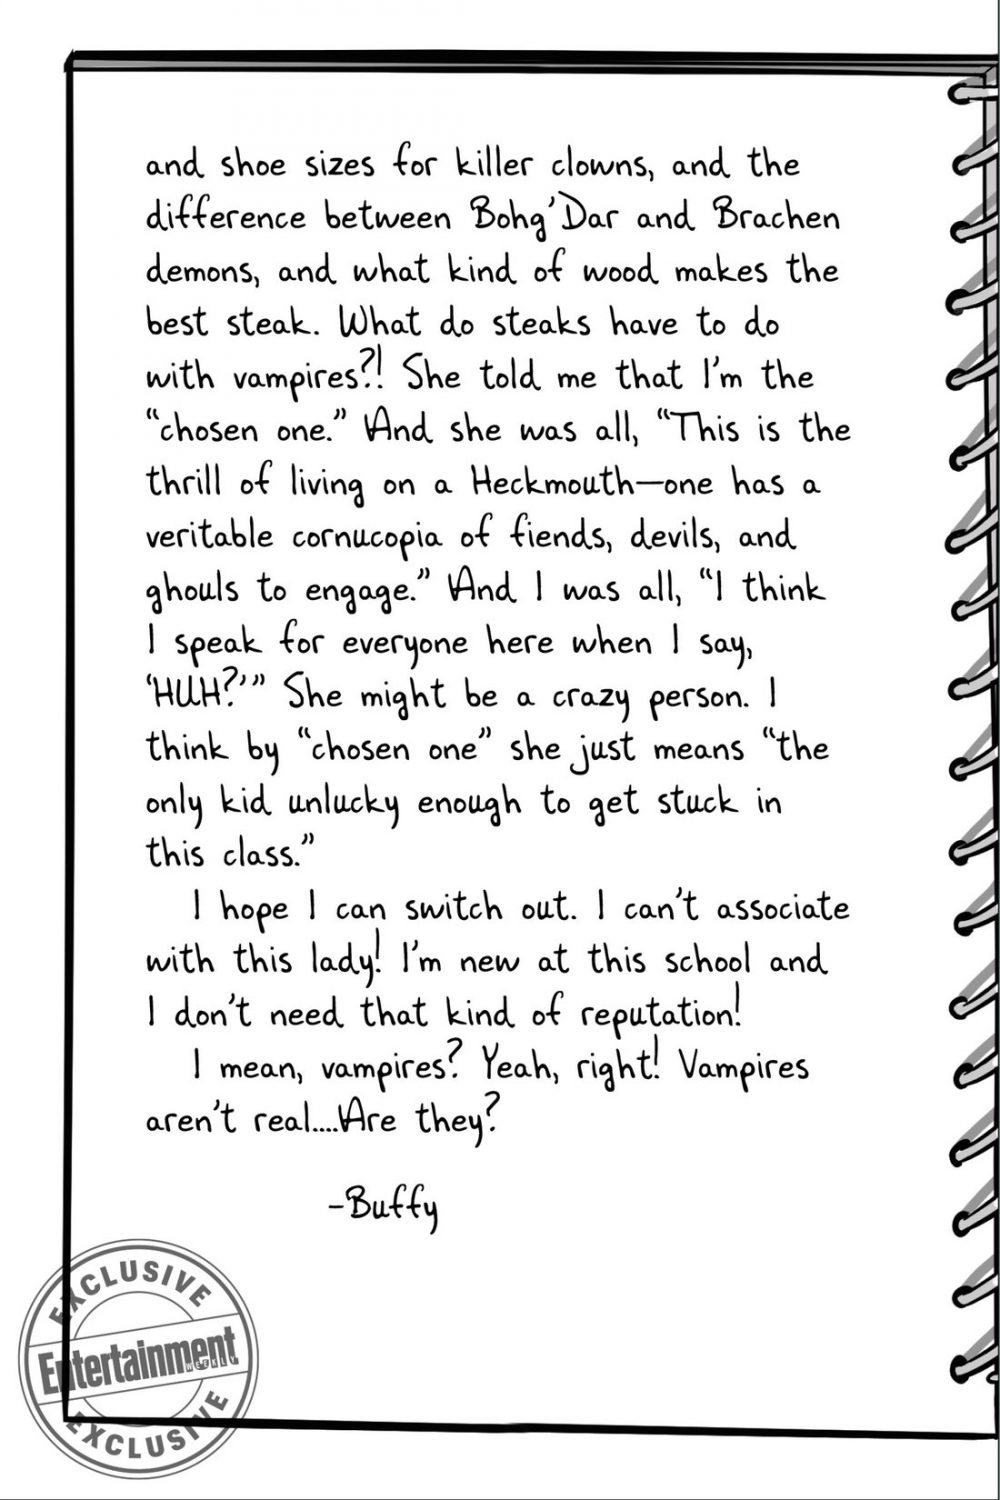 and shoe sizes for killer clowns, and the
difference between Bohg'Dar and Brachen
demons, and what kind of wood makes the
best steak. What do steaks have to do
with vampires?! She told me that I'm the
“chosen one.” And she was all, “This is the
thrill of living on a Heckmouth—one has a
veritable cornucopia of fiends, devils, and
ghouls to engage.” And I was all, “I think
I speak for everyone here when I say,
‘HUH?’” She might be a crazy person. I
think by “chosen one” she just means “the
only kid unlucky enough to get stuck in
this class.”
I hope I can switch out. I can't associate
with this lady! I'm new at this school and
I don't need that kind of reputation!
I mean, vampires? Yeah, right! Vampires
aren't real....Are they?
-Buffy
EXCLUSIVE
Entertainment
WEEKLY
EXCLUSIVE